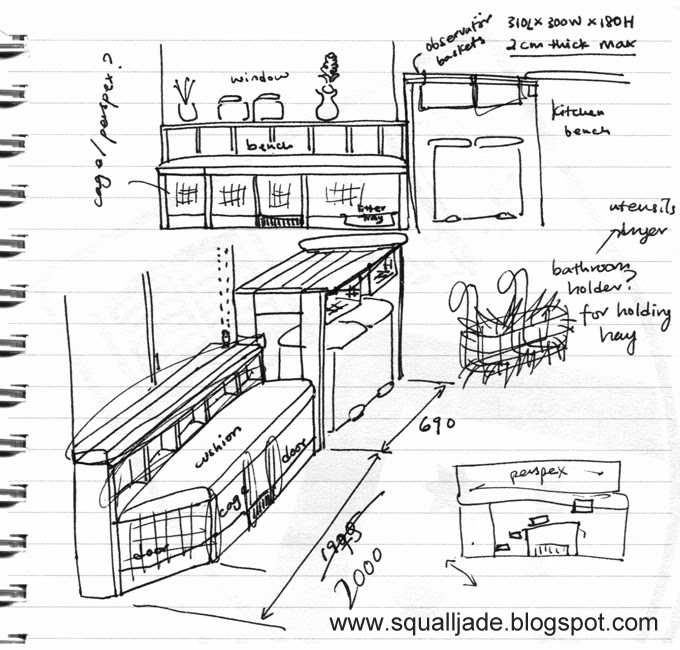 310L x 300W x 180H
2cm thick max
observator
baskets
cage/perspex?
window
kitchen
bench
bench
litter
tray
utensils
dryer
bathroom
holder?
for holding
hay
cushion
door
cage
door
690
2000
perspex
www.squalljade.blogspot.com